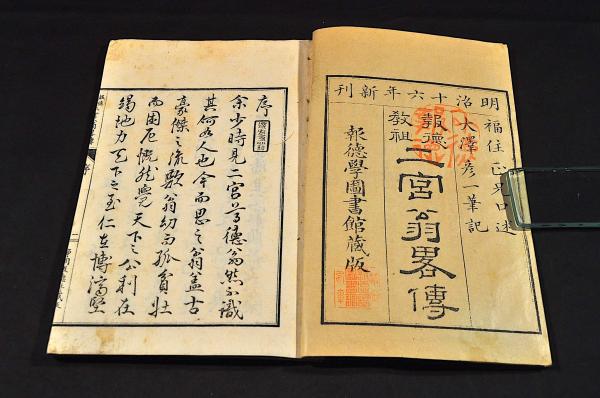 明治十六年新刊
福住正兄口述
大澤彦一筆記
報德
教祖
二宮翁畧傳
報德學圖書館藏版
序
余少時見二宮尊德翁然不識
其何如人也今而思之翁蓋古
豪傑之流歟翁幼而孤貧壯
而困厄慨然覺天下之公利在
竭地力天下之至仁在博濟堅